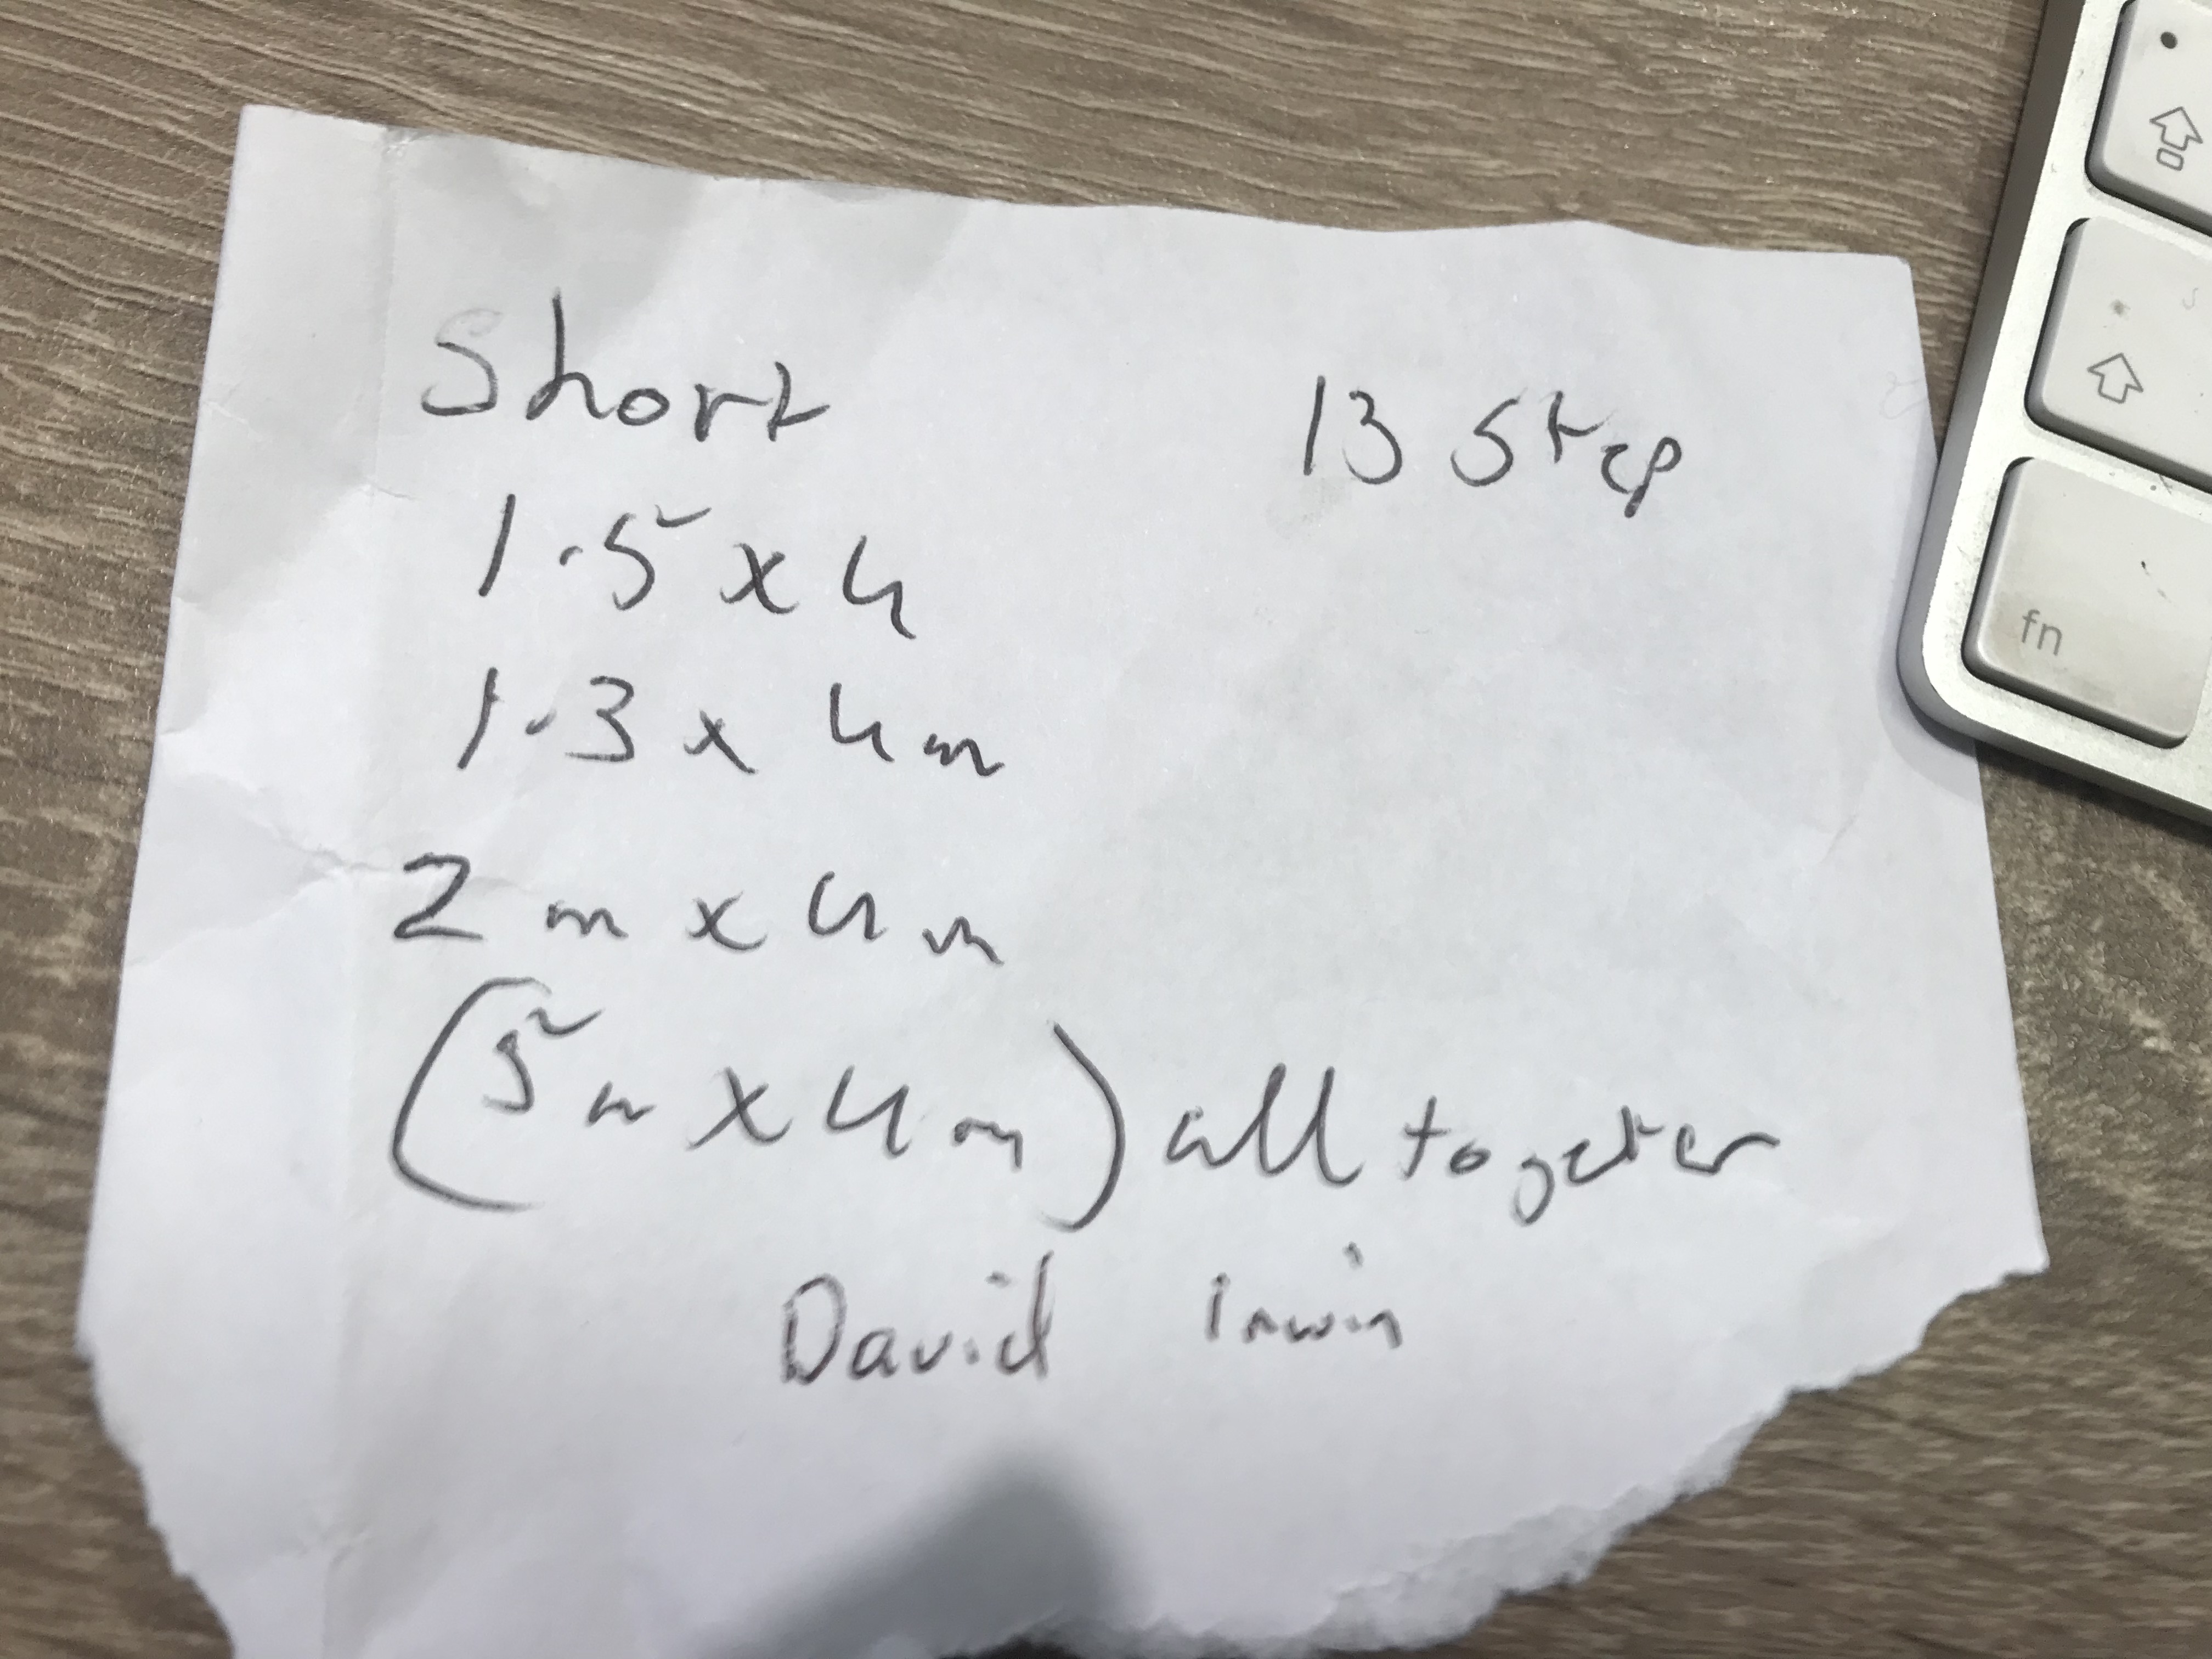 Short 13 Step
1.5 x 4
1.3 x 4m
2m x 4m
(5m x 4m) all together
David irwin
fn